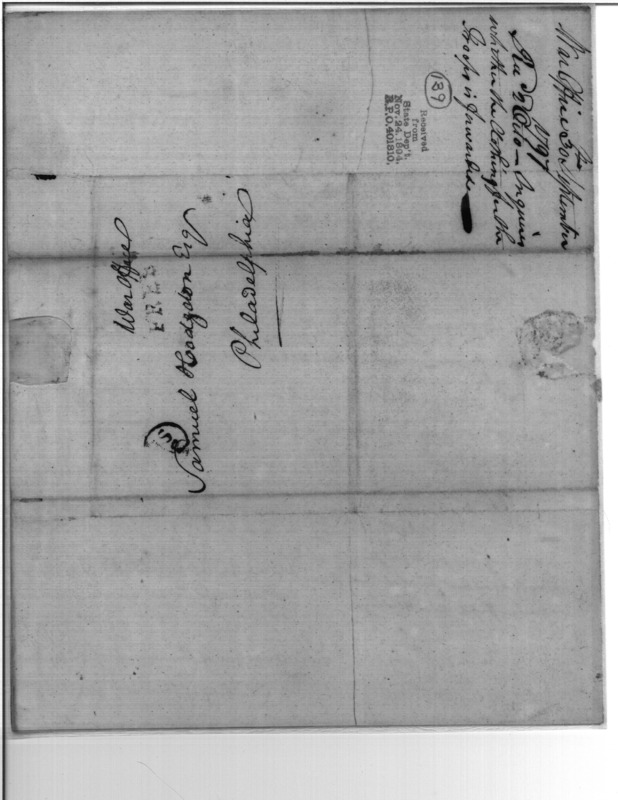 War Office 30th September
1797
Inquiry
whether the Clothing for the
Troops is forwarded
139
Received
from
State Dep't.
Nov. 24, 1894.
R.P.O, 401810.
War Office
FREE
Samuel Hodgdon Esq
Philadelphia